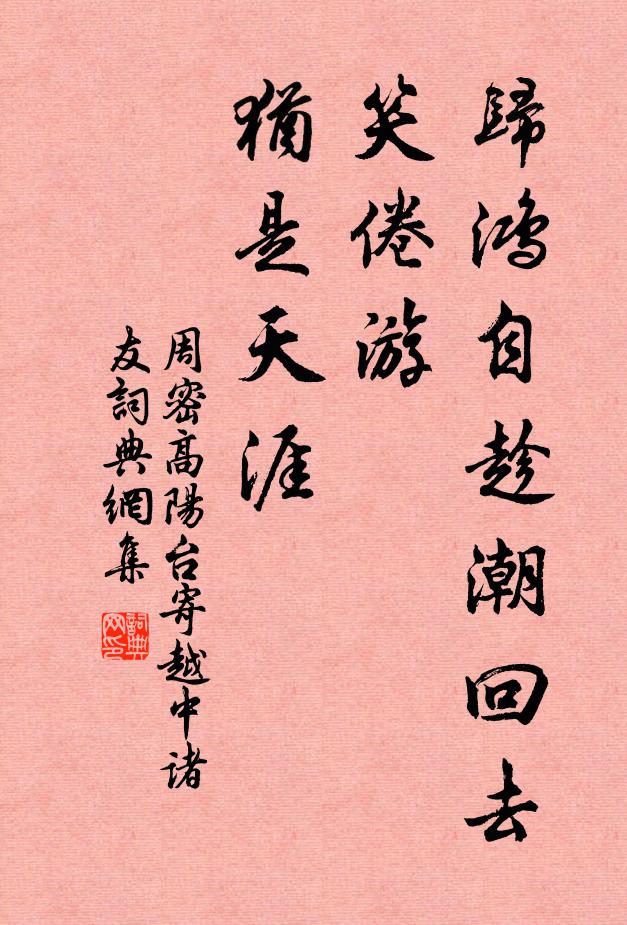 歸鴻自趁潮回去
笑倦游
猶是天涯
周密高陽台寄越中诸
友詞典網集
詞典
网印